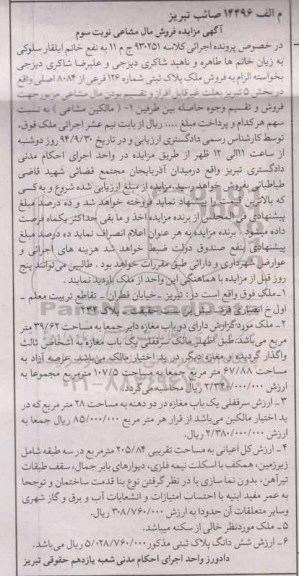 م الف ۱۴۴۹۶ صائب تبریز
آگهی مزایده فروش مال مشاعی نوبت سوم
در خصوص پرونده اجرائی کلاسه ۹۳۰۲۵۱ ج م ۱۱ به نفع خانم ایلقار سلوکی
به زیان خانم ها طاهره و ناهید شاکری دیزجی و علیرضا شاکری دیزجی
بخواسته الزام به فروش ملک پلاک ثبتی شماره ۱۲۶ فرعی از ۸۰۸۴ اصلی واقع
در بخش ۵ تبریز بعلت غیر قابل افراز و تقسیم بودن مال مشاعی مزبور جهت
فروش و تقسیم وجوه حاصله بین طرفین ۱- ( مالکین مشاعی ) به نسبت
سهم هر کدام و پرداخت مبلغ .... ریال از بابت نیم عشر اجرائی ملک فوق،
توسط کارشناس رسمی دادگستری ارزیابی و در تاریخ ۹۴/۹/۳۰ روز دوشنبه
از ساعت ۱۱الی ۱۲ ظهر از طریق مزایده در واحد اجرای احکام مدنی
دادگستری تبریز واقع درمیدان آذربایجان مجتمع قضائی شهید قاضی
طباطبائی بفروش خواهد رسید مزایده از مبلغ ارزیابی شده شروع و به کسی
که بالاترین قیمت را پیشنهاد نماید فروخته خواهد شد و ده درصد مبلغ
پیشنهادی فی المجلس از برنده مزایده اخذ و ما بقی حداکثر یکماه فرصت
داده میشود . برنده مزایده به هر عنوان اعلام انصراف نماید ده درصد مبلغ
پیشنهادی بنفع صندوق دولت ضبط خواهد شد هزینه های اجرائی و
عوارض شهرداری و دارائی طبق مقررات خواهد بود . طالبین می‌توانند پنج
روز قبل از مزایده با هماهنگی این واحد از ملک بازدید نمایند .
۱- ملک فوق واقع است در: تبریز - خیابان قطران - تقاطع تربیت معلم -
اول خ انصاری
۲- ملک مورد گزارش دارای دو باب مغازه دایر جمعا به مساحت ۳۹/۶۲ متر
مربع می‌باشد. طبق اظهار مالک سرقفلی یک باب مغازه به اشخاص ثالث
واگذار گردیده و مغازه دیگر در ید اختیار مالک می‌باشد. عرصه آزاد به
مساحت ۶۷/۸۸ متر مربع جمعا به مساحت ۱۰۷/۵ مترمربع مجموعا به
ارزش ۲/۳۴۰/۰۰۰/۰۰۰ ریال محاسبه می‌گردد.
۳ - ارزش سرقفلی یک باب مغازه در دو دهنه به مساحت ۲۸ متر مربع که در
ید اختیار مالکین می‌باشد از قرار هر متر مربع ۸۵/۰۰۰/۰۰۰ ریال جمعا به
ارزش ۲/۳۸۰/۰۰۰/۰۰۰ ریال.
۴ - ارزش کل اعیانی به مساحت تقریبی ۲۰۵/۸۴ مترمربع در سه طبقه شامل
زیرزمین، همکف با اسکلت نیمه فلزی، دیوارهای باربر جمال، سقف طبقات
تیرآهن، بدون نماسازی با در نظر گرفتن نوع بنا قدمت ساختمان و توجها
به عمر مفید ابنیه با احتساب امتیازات و انشعابات آب و برق و گاز شهری
وسایر متعلقات آن حدودا به ارزش ۳۰۸/۷۶۰/۰۰۰ ریال.
۵ - ملک موردنظر خالی از سکنه میباشد.
۶ - ارزش شش دانگ پلاک ثبتی مذکور ۵/۰۲۸/۷۶۰/۰۰۰ ریال می‌باشد.
دادورز واحد اجرای احکام مدنی شعبه یازدهم حقوقی تبریز